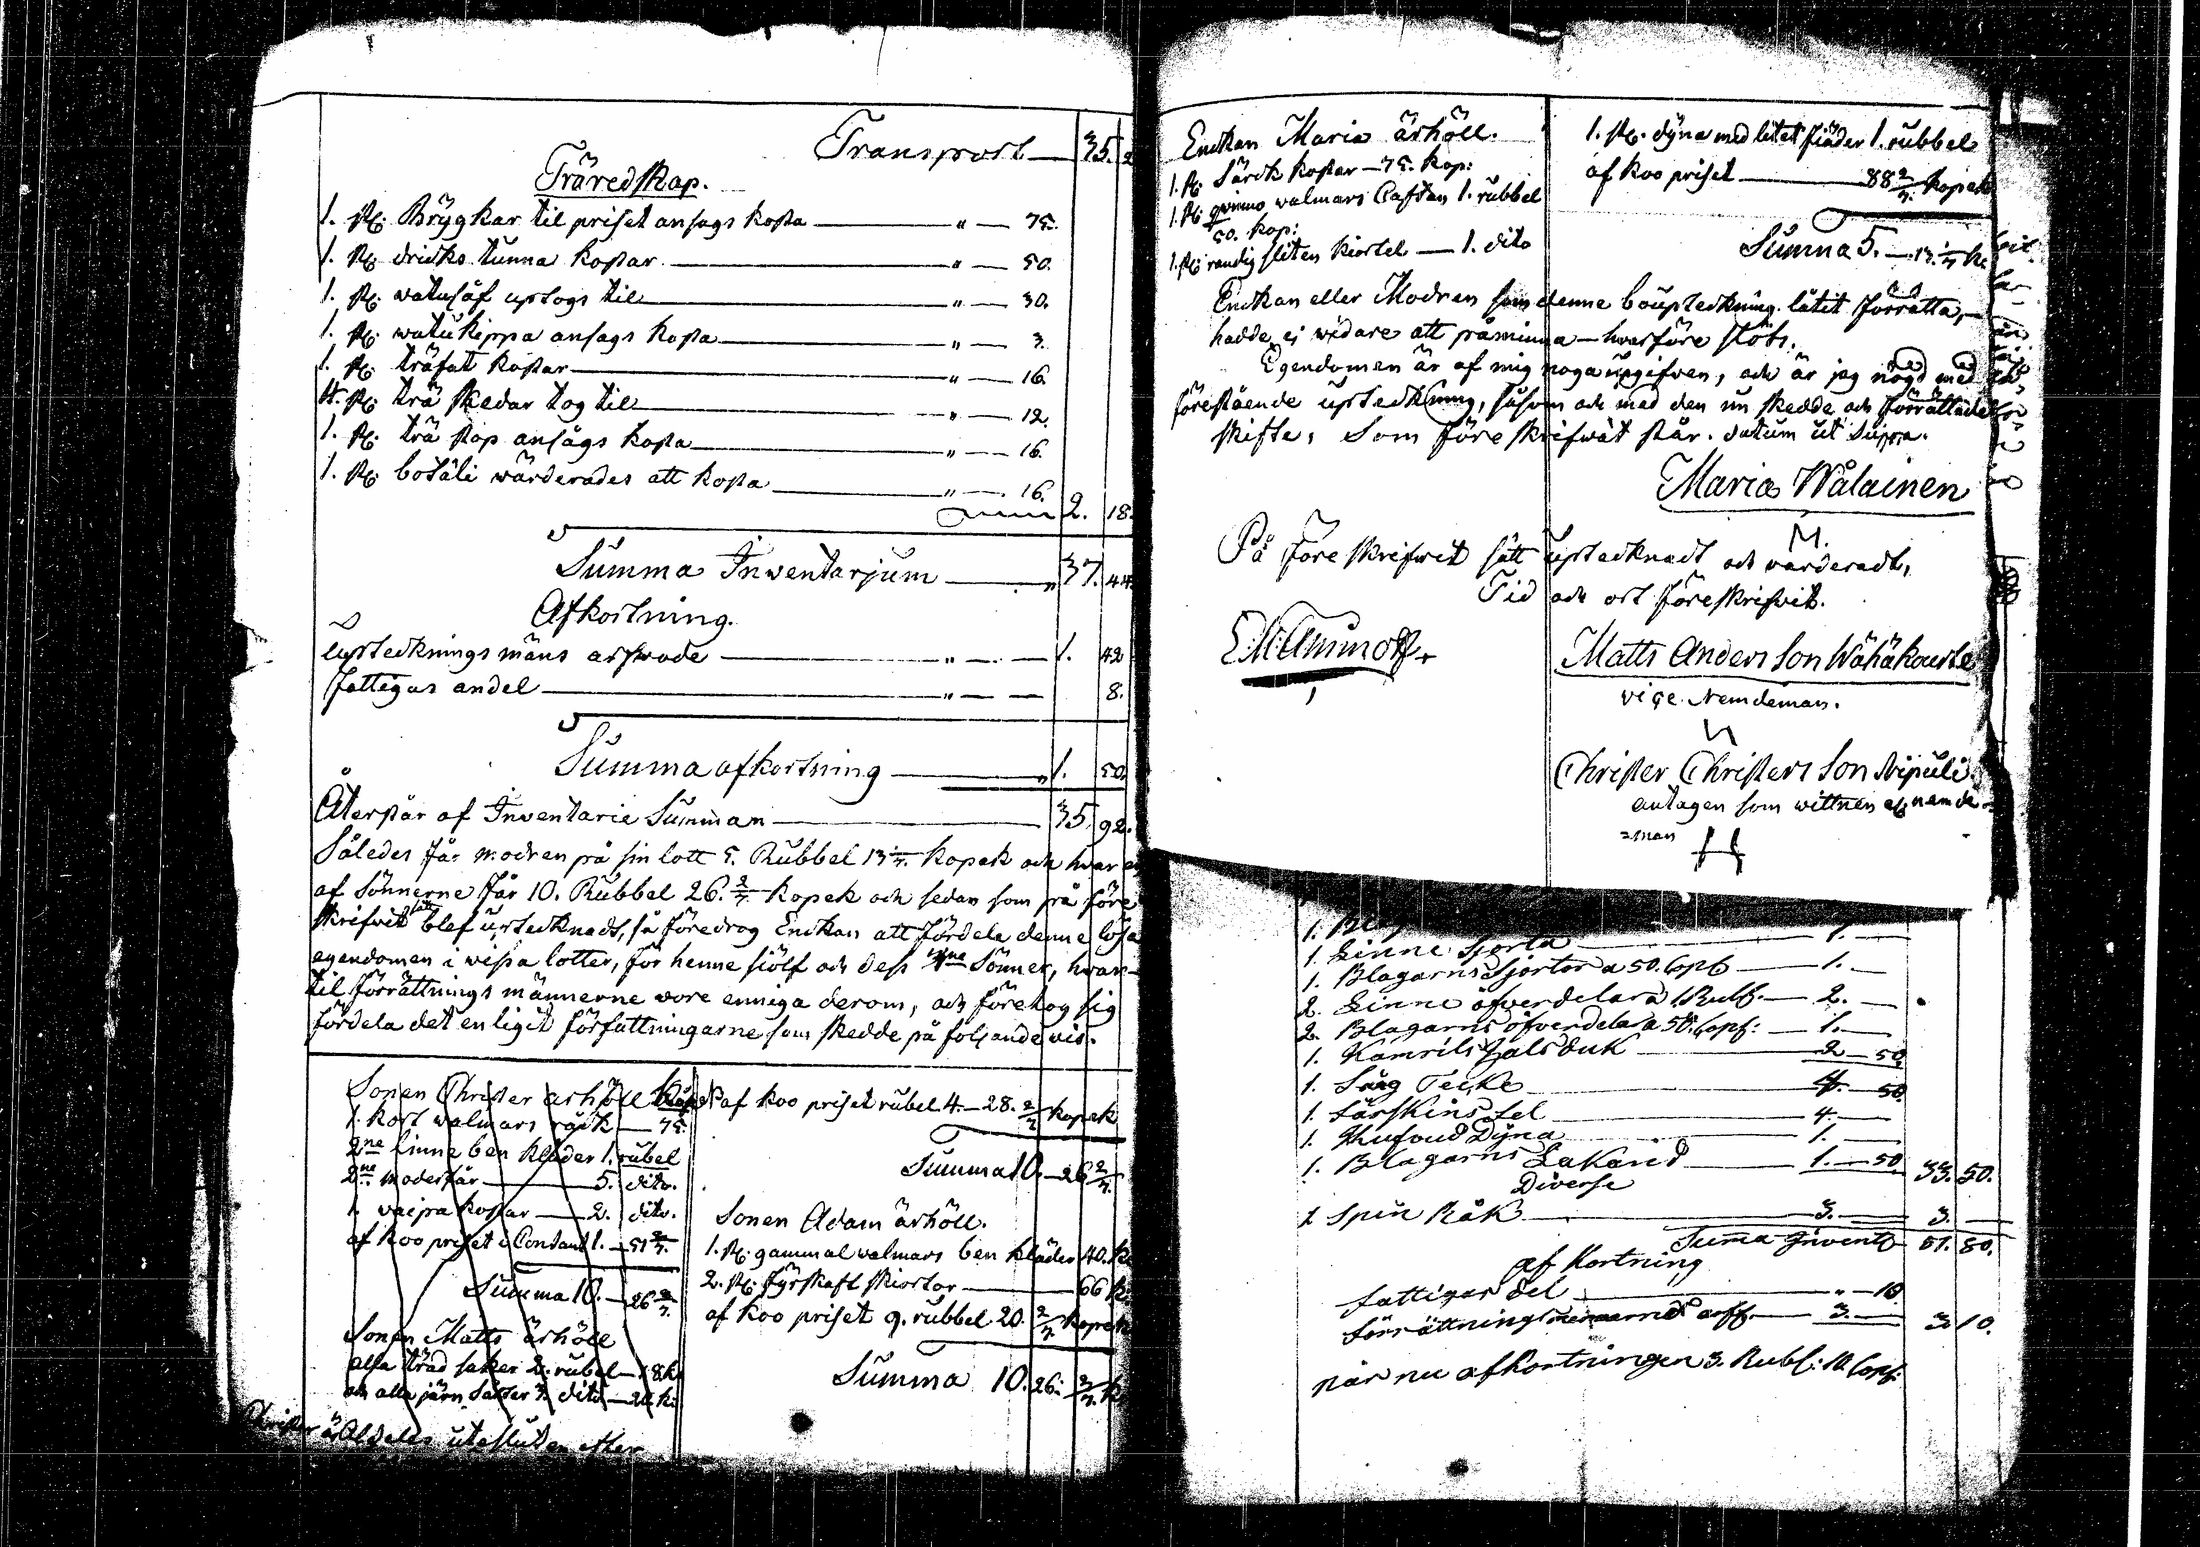 Transport — 35. 2
Träredskap.
1. st. Bryggkar til priset ansags kosta — " — 75.
1. st. dricks tunna kostar — " — 50.
1. st. watusåf uptogs til — " — 30.
1. st. watukippa ansags kosta — " — 3.
1. st. träfat kostar — " — 16.
4. st. trä skedar tog til — " — 12.
1. st. trä stop ansågs kosta — " — 16.
1. st. botäli wärderades att kosta — " — 16. 2. 18.
Summa Inwentarjum — " 37. 44.
Afkortning.
Uptecknings mäns arfwode — " — 1. 42
fattigas andel — " — 8.
Summa afkortning — " 1. 50.
Återstår af Inwentarie Summan — 35. 92.
Således får modren på sin lott 5. Rubbel 13 1/7. kopek och hvar en
af Sönnerne får 10. Rubbel 26. 2/7 kopek och sedan som på före
skrifwit sätt blef uptecknadt, så föredrog Enckan att fördela denne lösa
egendomen i wissa lotter, för henne siölf och dess Sönner, hvar-
til förrättnings männerne wore enniga derom, och företog sig
fördela det enligit författningarne som skedde på följande vis.
Sonen Christer ärhöll
1. kort walmars råck — 75.
2ne linne ben kläder 1. rubel
2ne moderfår — 5. dito.
1. kostar — 2. dito.
af koo priset i Contant 1. — 51 2/7.
Summa 10. — 26 2/7.
Sonen Matts ärhöll
alla träd saker 2. rubel — 18 k.
och alla järn saker 3. dito — 20. k:
Christer är Aldeles utesluten
af koo priset rubel 4. — 28. 2/7 kopek
Summa 10. — 26 2/7.
Sonen Adam ärhöll.
1. st. gammal walmars ben kläder 40. k.
2. st. fyrskaft skiortor — 66 k.
af koo priset 9. rubbel 20. 2/7 kopek
Summa 10. 26. 2/7. k
Enckan Maria ärhöll.
1. st. Särck kostar — 75. kop:
1. st. qvinno walmars Caftan 1. rubbel
50. kop:
1. st. randig sliten kiortel — 1. dito
1. st. dyna med litet fiäder 1. rubbel
af koo priset — 88 2/7. kopek
Summa 5. — 13. 1/7 k.
Enckan eller Modren som denne bouptecknïng låtit förrätta,
hadde ej widare att påminna — hvarföre slöts.
Egendomen är af mig noga upgifven, och är jag nögd med
förestående upteckning, såsom och med den nu skedde och förrättade
skifte, Som föreskrifwit står. datum ut supra.
Maria Wälainen
På föreskrifwit sätt uptecknadt och värderadt,
Tid och ort föreskrifvit.
E. M. Ammoff
Matts Anders Son Wähäkourte
vice Nemdeman.
Christer Christers Son Sipuli
antagen som wittnen ef nemde
=man
1. Linne Sjorta — 1. —
1. Blagarns Sjortor a 50. Cop — 1. —
2. Linne öfverdelar a 1 Rubl. — 2. —
2. Blagarns öfverdelar a 50. Cop: — 1. —
1. Kamrils halsduk — 2 — 50
1. Säng Tecke — 4. — 50.
1. Fårskins fel — 4. —
1. Hufvud Dyna — 1. —
1. Blagarns Lakand — 1. — 50 33. 50.
Diverse
1 Spin Råk — 3. — 3. —
Summa Invent. 51. 80.
af Kortning
fattigas del — " — 10
förrättnings männernes arff — 3. — 3 10.
när nu afkortningen 3. Rubl: 10 Cop: